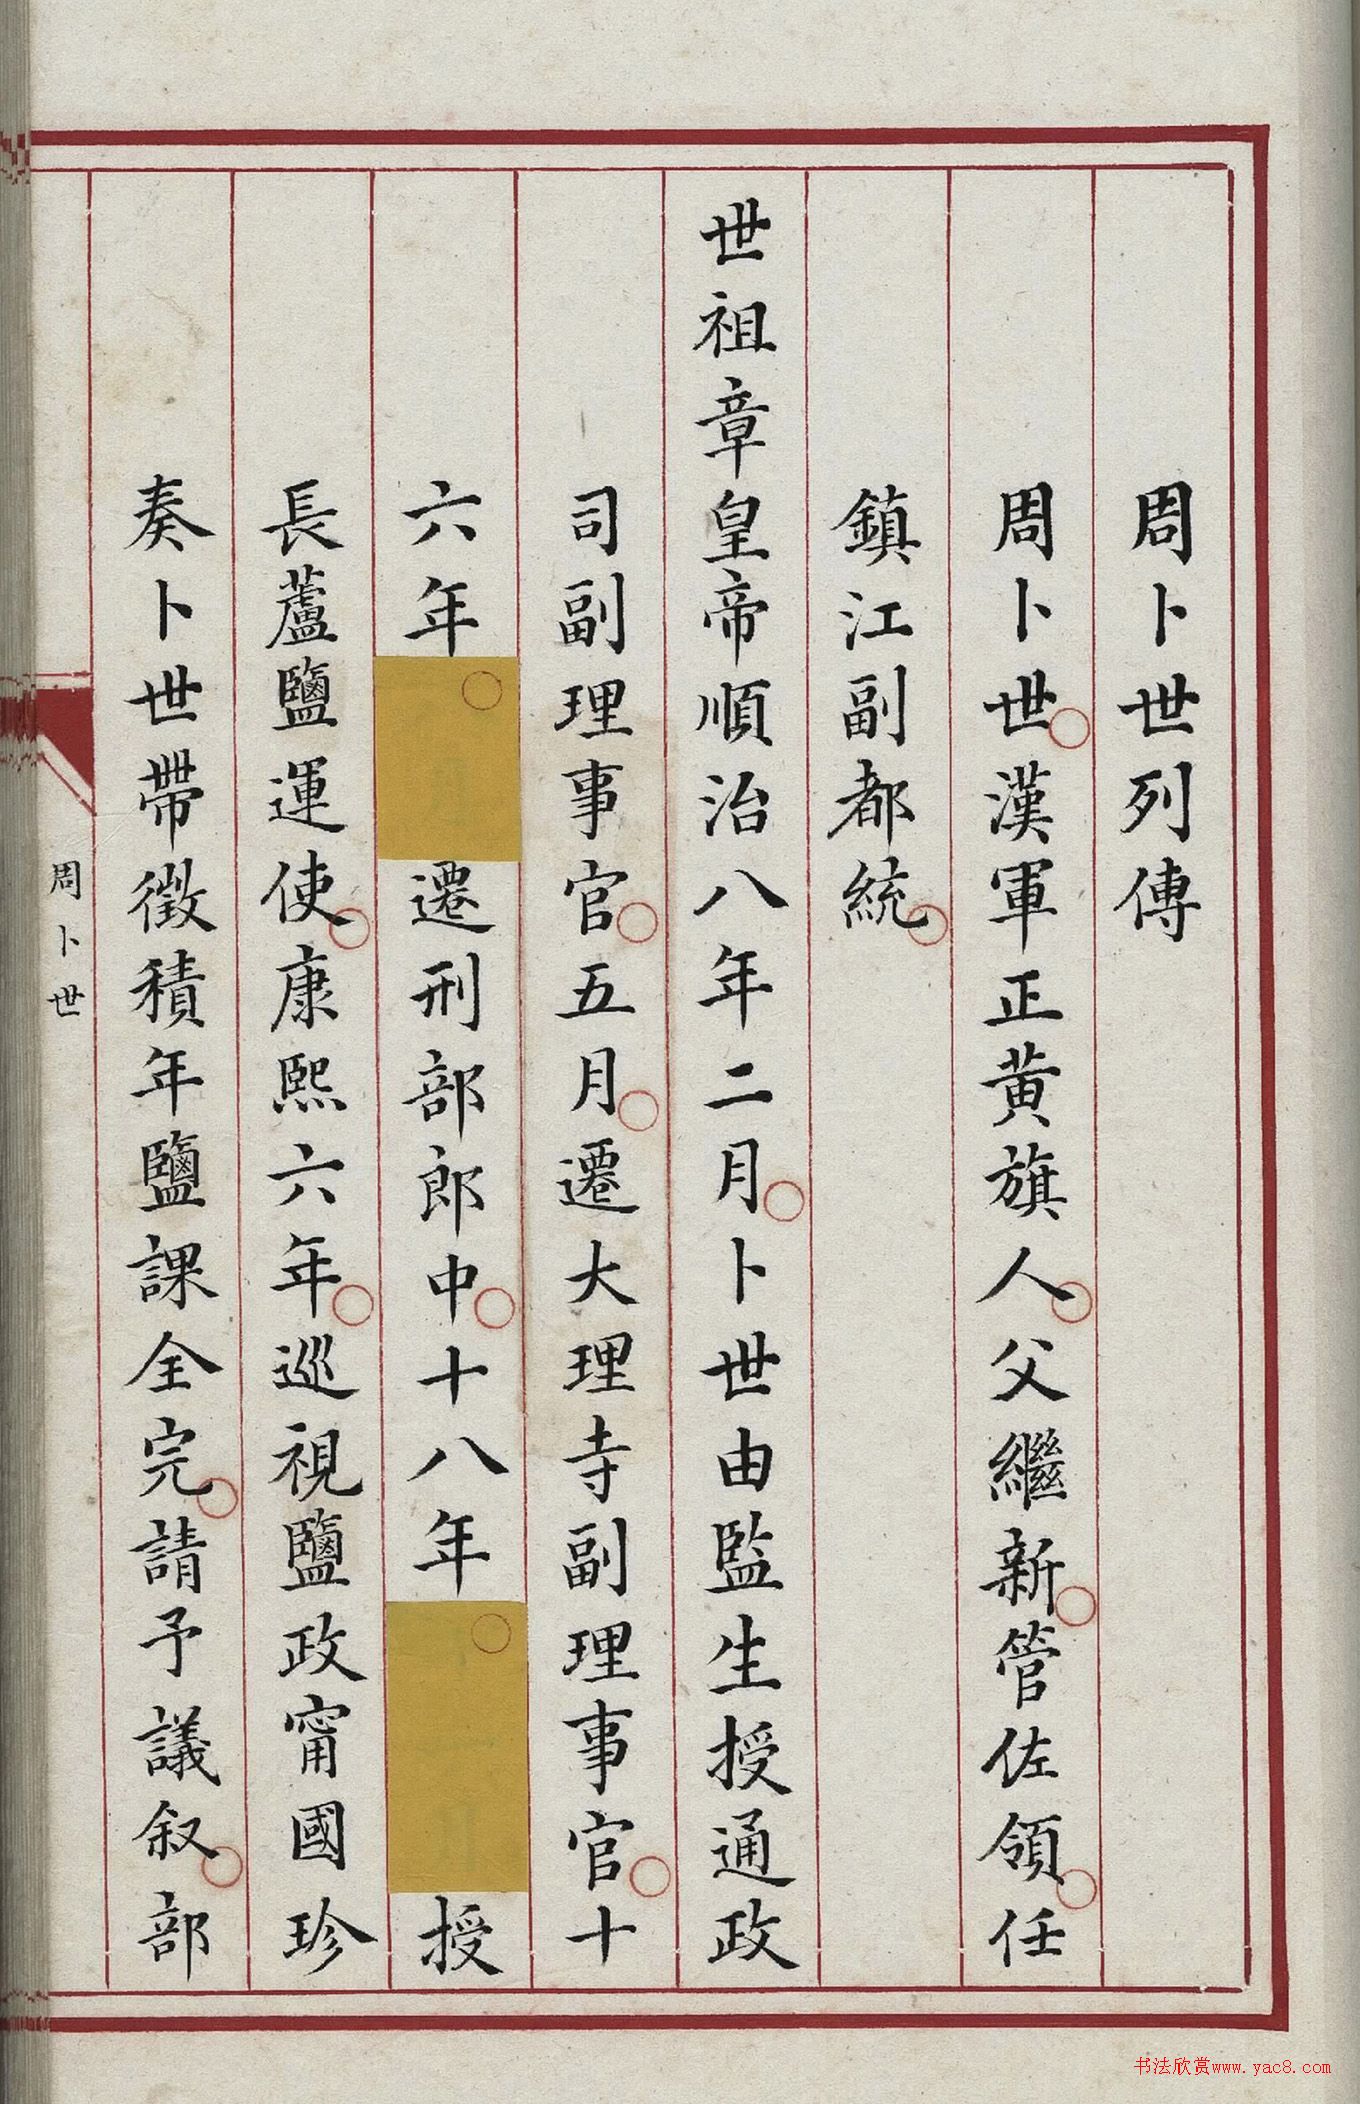 周卜世列傳
周卜世漢軍正黃旗人父繼新管佐領任
鎮江副都統
世祖章皇帝順治八年二月卜世由監生授通政
司副理事官五月遷大理寺副理事官十
六年遷刑部郎中十八年授
長蘆鹽運使康熙六年巡視鹽政甯國珍
奏卜世帶徵積年鹽課全完請予議叙部
周卜世
书法欣赏www.yac8.com